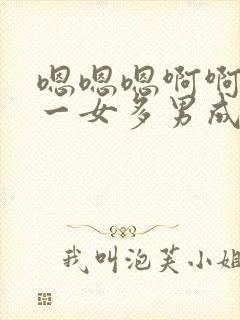 嗯嗯嗯啊啊
一女多男成
我叫泡芙小姐